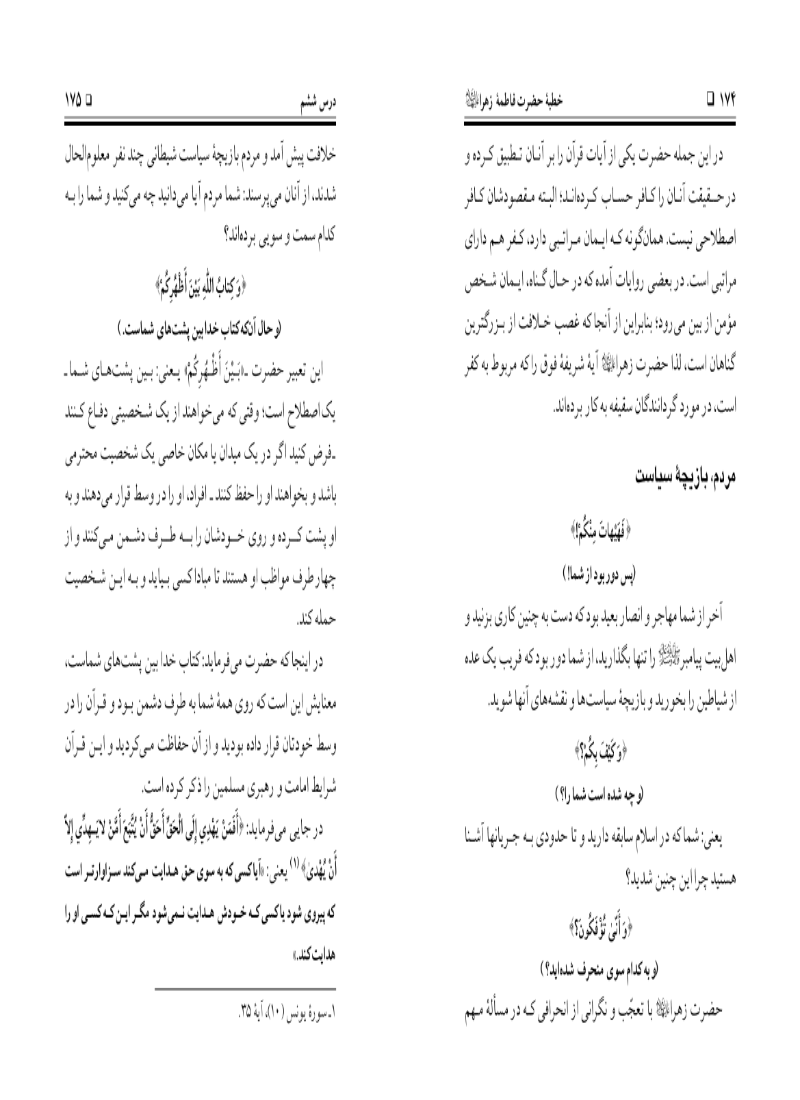 ۱۷۴ ❑ خطبهٔ حضرت فاطمهٔ زهرا
در این جمله حضرت یکی از آیات قرآن را بر آنان تطبیق کرده و
در حقیقت آنان را کافر حساب کرده‌اند؛ البته مقصودشان کافر
اصطلاحی نیست. همان‌گونه که ایمان مراتبی دارد، کفر هم دارای
مراتبی است. در بعضی روایات آمده که در حال گناه، ایمان شخص
مؤمن از بین می‌رود؛ بنابراین از آنجا که غصب خلافت از بزرگترین
گناهان است، لذا حضرت زهرا آیهٔ شریفهٔ فوق را که مربوط به کفر
است، در مورد گردانندگان سقیفه به کار برده‌اند.
مردم، بازیچهٔ سیاست
﴿فَهَیْهاتَ مِنْکُمْ!﴾
(پس دور بود از شما!)
آخر از شما مهاجر و انصار بعید بود که دست به چنین کاری بزنید و
اهل‌بیت پیامبر را تنها بگذارید، از شما دور بود که فریب یک عده
از شیاطین را بخورید و بازیچهٔ سیاست‌ها و نقشه‌های آنها شوید.
﴿وَ کَیْفَ بِکُمْ؟﴾
(و چه شده است شما را؟)
یعنی: شما که در اسلام سابقه دارید و تا حدودی به جریانها آشنا
هستید چرا این چنین شدید؟
﴿وَ أَنّیٰ تُؤْفَکُونَ؟﴾
(و به کدام سوی منحرف شده‌اید؟)
حضرت زهرا با تعجّب و نگرانی از انحرافی که در مسألهٔ مهم
درس ششم ❑ ۱۷۵
خلافت پیش آمد و مردم بازیچهٔ سیاست شیطانی چند نفر معلوم‌الحال
شدند، از آنان می‌پرسند: شما مردم آیا می‌دانید چه می‌کنید و شما را به
کدام سمت و سویی برده‌اند؟
﴿وَ کِتابُ اللهِ بَیْنَ أَظْهُرِکُمْ﴾
(و حال آن‌که کتاب خدا بین پشت‌های شماست.)
این تعبیر حضرت ـ«بَیْنَ أَظْهُرِکُمْ» یعنی: بین پشت‌های شما ـ
یک اصطلاح است؛ وقتی که می‌خواهند از یک شخصیتی دفاع کنند
ـ فرض کنید اگر در یک میدان یا مکان خاصی یک شخصیت محترمی
باشد و بخواهند او را حفظ کنند ـ افراد، او را در وسط قرار می‌دهند و به
او پشت کرده و روی خودشان را به طرف دشمن می‌کنند و از
چهار طرف مواظب او هستند تا مبادا کسی بیاید و به این شخصیت
حمله کند.
در اینجا که حضرت می‌فرماید: کتاب خدا بین پشت‌های شماست،
معنایش این است که روی همهٔ شما به طرف دشمن بود و قرآن را در
وسط خودتان قرار داده بودید و از آن حفاظت می‌کردید و این قرآن
شرایط امامت و رهبری مسلمین را ذکر کرده است.
در جایی می‌فرماید: ﴿أَفَمَنْ یَهْدِي إِلَی الْحَقِّ أَحَقُّ أَنْ یُتَّبَعَ أَمَّنْ لا یَهِدِّي إِلاّ
أَنْ یُهْدیٰ﴾ (۱) یعنی: «آیا کسی که به سوی حق هدایت می‌کند سزاوارتر است
که پیروی شود یا کسی که خودش هدایت نمی‌شود مگر این که کسی او را
هدایت کند.»
۱ـ سورهٔ یونس (۱۰)، آیهٔ ۳۵.